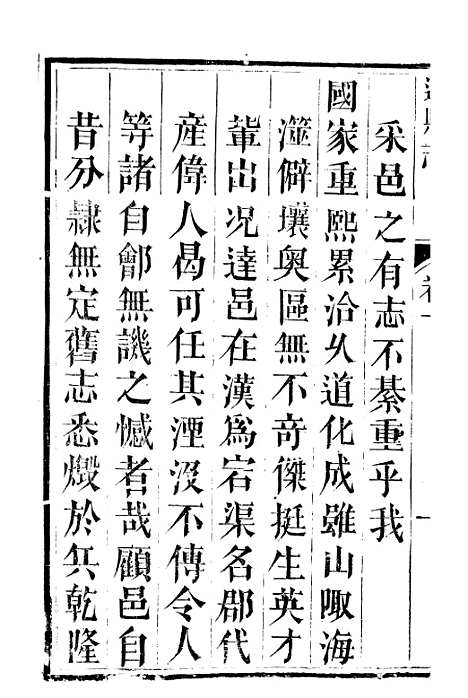 達縣志
卷一
一
采邑之有志不綦重乎我
國家重熙累洽久道化成雖山陬海
澨僻壤奧區無不奇傑挺生英才
輩出况達邑在漢爲宕渠名郡代
產偉人曷可任其湮沒不傳令人
等諸自鄶無譏之憾者哉顧邑自
昔分隷無定舊志悉燬於兵乾隆